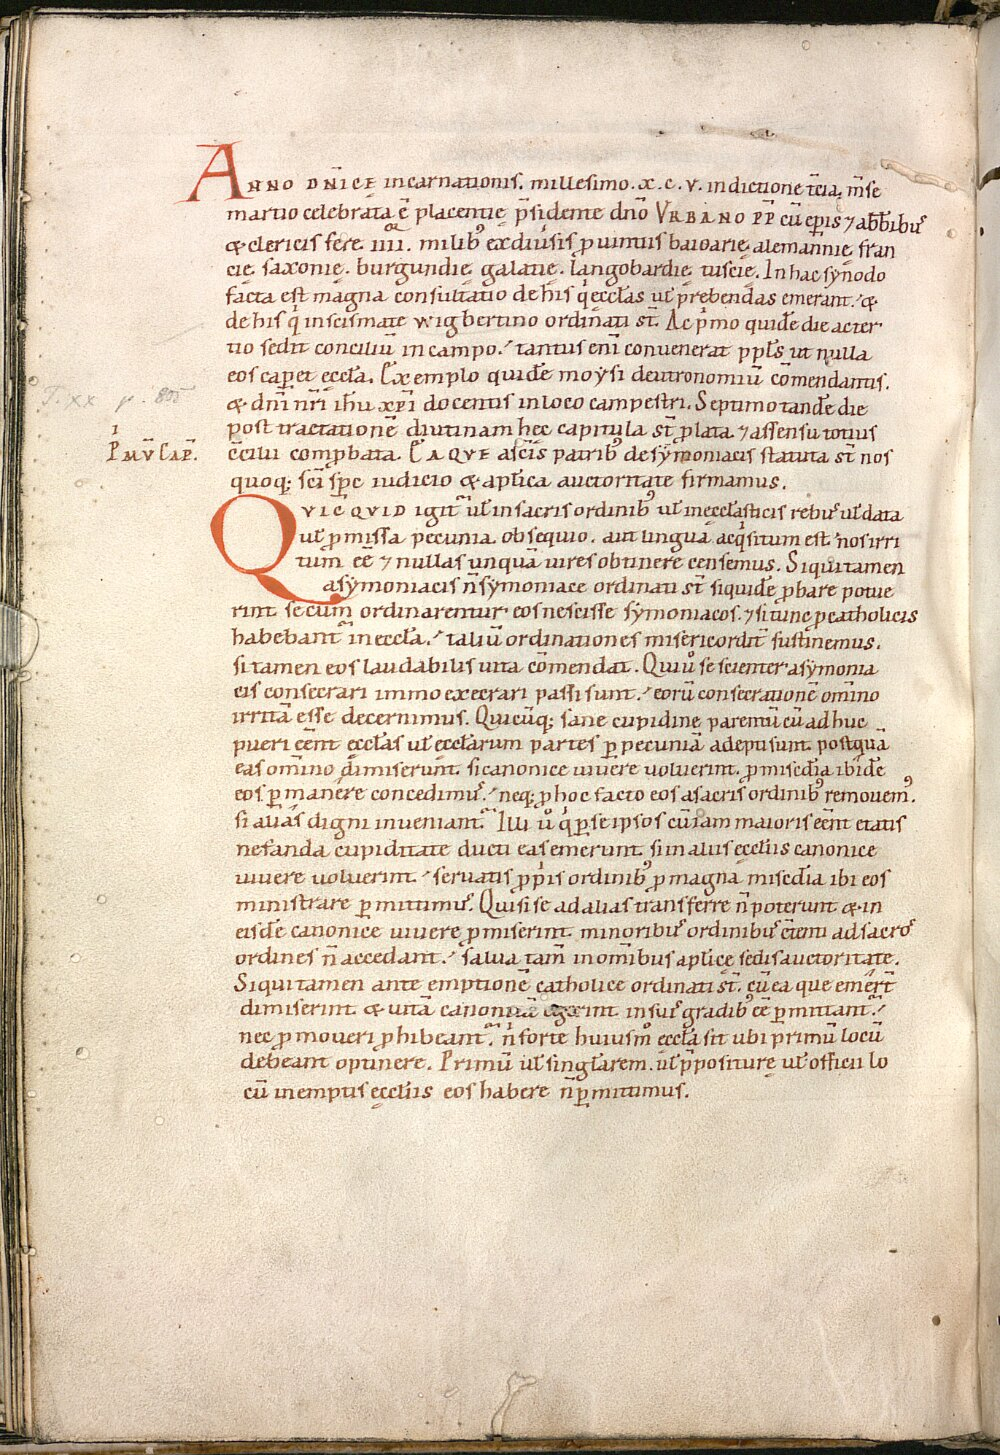 ANNO DN̄ICE incarnationis. millesimo. x. c. v. indictione t̄cia, m̄se
martio celebrata ē placentię p̄sidente dn̄o VRBANO PP̄ cū ep̄is ⁊ abb̄ibꝰ
& clericis fere IIII. milib; ex diu̾sis ꝓuintiis baioarię alemannię, fran
cię, saxonię. burgundię, galatię. langobardię, tuscię, In hac synodo
facta est magna consultatio de his q̇ ęcclas ul̄ p̄bendas emerant. &
de his q̇ in scismate wigbertino ordinati st̄. Ac p̍mo quidē die ac ter
tio sedit conciliū in campo. tantus eni convenerat ppl̄s ut nulla
eos cap̄et ęccla. Exemplo quidē moysi deutronomiū cōmendantis.
& dn̄i nr̄i ih̄u xp̄i docentis in loco campestri. Septimo tandē die
post tractationē diutinam hęc capitula st̄ plata ⁊ assensu totius
c̄cilii comꝓbata. EAQVE a sc̄is patrib; de symoniacis statuta st̄ nos
quoq; sc̄i sp̄c iudicio & aplica auctoritate firmamus.
I
PMV̄ CAP̄.
QVICQVID igit̄ ul̄ in sacris ordinib; ul̄ in ęcclasticis rebꝰ ul̄ data
ul̄ ꝓmissa pecunia. obsequio. aut lingua acq̇situm est. nos irri
tum eē ⁊ nullas unquā uires obtinere censemus. Siqui tamen
a symoniacis n̄ symoniace ordinati st̄ siquidē ꝓbare potue
rint se cum ordinarentur eos nescisse symoniacos. ⁊ si tunc ꝓ catholicis
habebant̄ in ęccla. taliū ordinationes misericordit̄ sustinemus.
si tamen eos laudabilis uita cōmendat. Qui u̾ se scienter a symonia
cis consecrari immo execrari passi sunt. eorū consecrationē om̄ino
irritā esse decernimus. Quicūq; sane cupidine parentū cū adhuc
pueri eēnt ęcclas ul̄ ęcclarum partes ꝑ pecuniā adepti sunt. postquā
eas om̄ino dimiserunt. si canonice uiuere uoluerint. ꝓ mis̄cdia ibidē
eos ꝑmanere concedimꝰ. neq; ꝓ hoc facto eos a sacris ordinib; remouemꝰ.
si alias digni inueniant̄. Illi u̾ q̇ ꝑ se ipsos cū iam maioris eēnt ętatis
nefanda cupiditate ducti eas emerunt. si in aliis ęccliis canonice
uiuere uoluerint. seruatis ꝓp̍is ordinib; ꝓ magna mis̄cdia ibi eos
ministrare ꝑmittimꝰ. Qui si se ad alias transferre n̄ poterunt & in
eisdē canonice uiuere ꝓmiserint. minoribꝰ ordinibꝰ c̄tenti ad sacroꝰ
ordines n̄ accedant. salua tam̄ in om̄ibus aplicę sedis auctoritate.
Siqui tamen ante emptionē catholice ordinati st̄. cū ea que emer̄t
dimiserint & uitā canonicā egerint. in suiꝰ gradib; eē ꝑmittant̄.
nec ꝓmoueri ꝓhibeant̄. n̍ forte huiusm̊ ęccla sit ubi primū locū
debeant optinere. Primū ul̄ singlarem. ul̄ p̄positurę ul̄ officii lo
cū in emptis ęccliis eos habere n̄ ꝑmittimus.